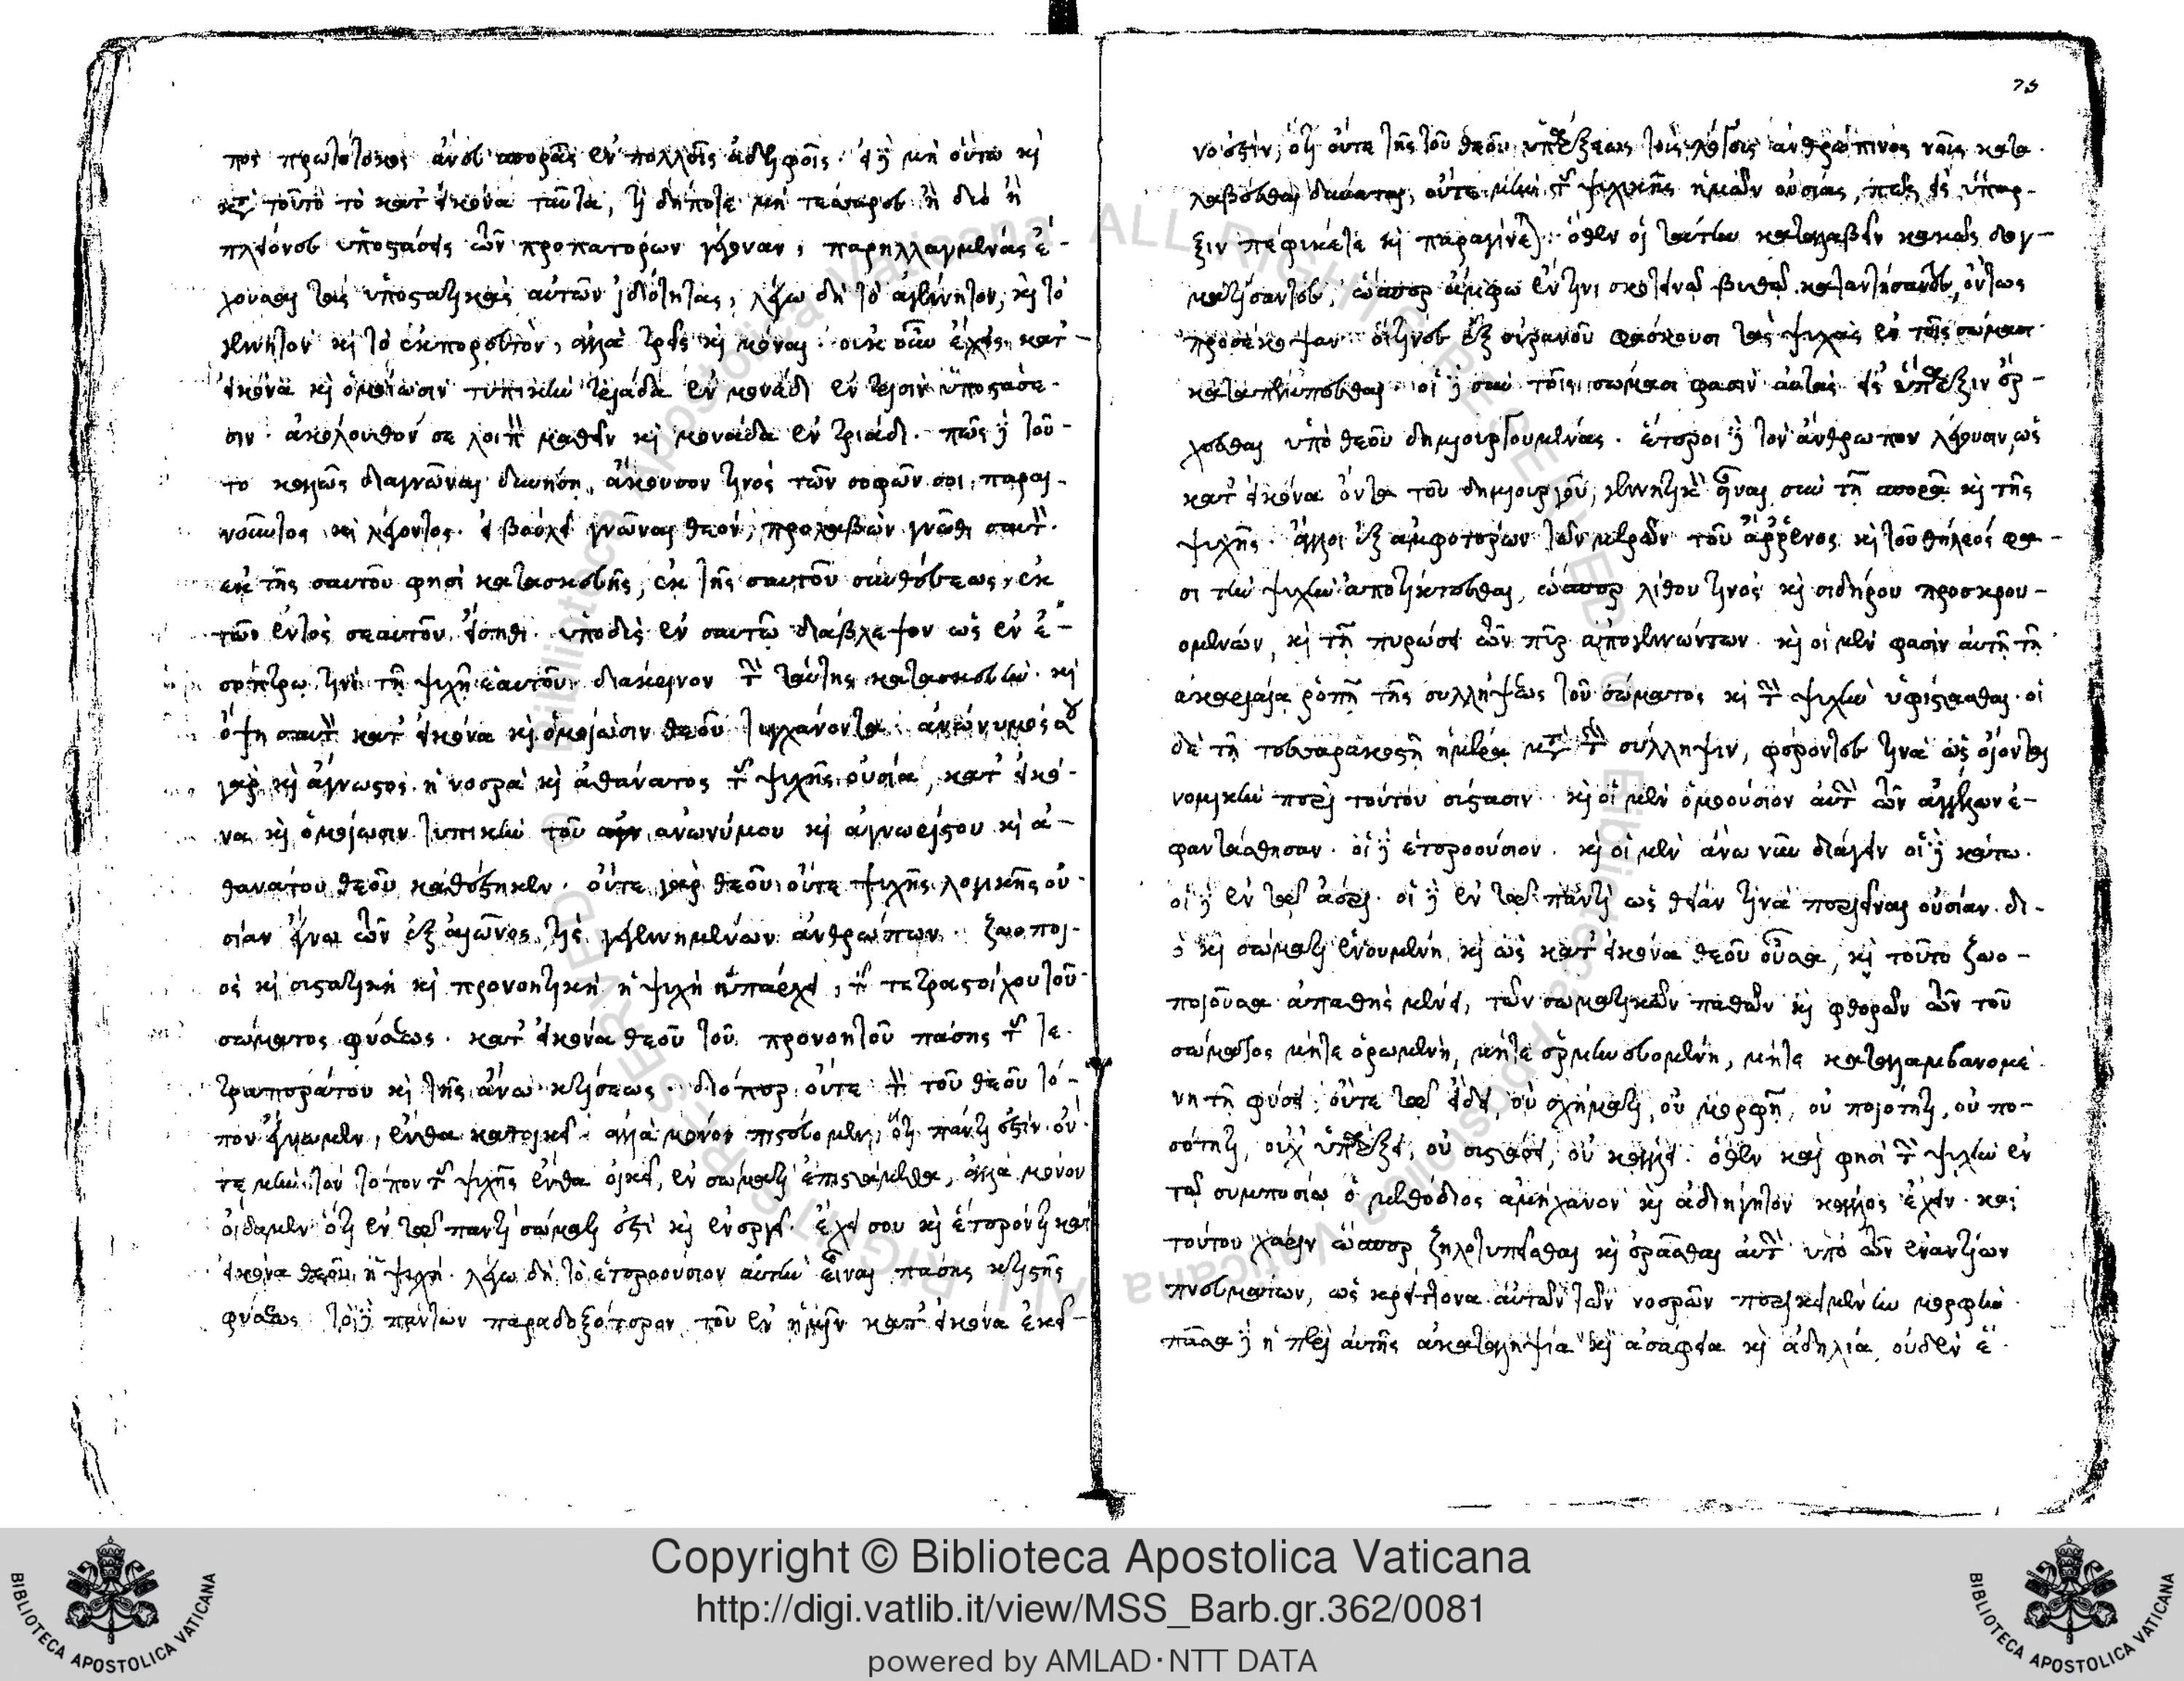 πος πρωτότοκος ἄνευ σπορᾶς ἐν πολλοῖς ἀδελφοῖς. εἰ δὲ μὴ οὕτω καὶ
κατὰ τοῦτο τὸ κατ' εἰκόνα ταῦτα, τί δήποτε μὴ τέσσαρες ἢ δύο ἢ
πλείονες ὑποστάσεις τῶν προπατόρων γέγοναν, παρηλλαγμένας ἔ-
χουσαι τὰς ὑποστατικὰς αὐτῶν ἰδιότητας, λέγω δὴ τὸ ἀγέννητον, καὶ τὸ
γεννητὸν καὶ τὸ ἐκπορευτὸν, ἀλλὰ τρεῖς καὶ μόναι. οὐκοῦν ἔχεις κατ'
εἰκόνα καὶ ὁμοίωσιν τυπικὴν τριάδα ἐν μονάδι ἐν τρισὶν ὑποστάσε-
σιν. ἀκόλουθόν σε λοιπὸν μαθεῖν καὶ μονάδα ἐν τριάδι. πῶς δὲ τοῦ-
το καλῶς διαγνῶναι δυνήσῃ, ἄκουσον τινὸς τῶν σοφῶν σοι παραι-
νοῦντος καὶ λέγοντος. εἰ βούλει γνῶναι θεόν, προλαβὼν γνῶθι σαυτὸν.
ἐκ τῆς σαυτοῦ φησὶ κατασκευῆς, ἐκ τῆς σαυτοῦ συνθέσεως, ἐκ
τῶν ἐντὸς σεαυτοῦ. εἴσηθι ὑποδὺς ἐν σαυτῷ διάβλεψον ὡς ἐν ἐ-
σόπτρῳ τινὶ τῇ ψυχῇ ἑαυτοῦ διάκρινον τὴν ταύτης κατασκευὴν. καὶ
ὄψη σαυτὸν κατ' εἰκόνα καὶ ὁμοίωσιν θεοῦ τυγχάνοντα. ἀνώνυμος
γὰρ καὶ ἄγνωστος ἡ νοερὰ καὶ ἀθάνατος τῆς ψυχῆς οὐσία, κατ' εἰκό-
να καὶ ὁμοίωσιν τυπικὴν τοῦ ἀνωνύμου καὶ ἀγνωρίστου καὶ ἀ-
θανάτου θεοῦ καθέστηκεν. οὔτε γὰρ θεοῦ οὔτε ψυχῆς λογικῆς οὐ-
σίαν ἔγνω τῶν ἐξ αἰῶνος τὶς γεγεννημένων ἀνθρώπων. ζωοποι-
ὸς καὶ συστατικὴ καὶ προνοητικὴ ἡ ψυχὴ ὑπάρχει, τῆς τετραστοίχου τοῦ
σώματος φύσεως. κατ' εἰκόνα θεοῦ τοῦ προνοητοῦ πάσης τῆς τε-
τραπεράτου καὶ τῆς ἄνω κτίσεως. διόπερ οὔτε τὸν τοῦ θεοῦ τό-
πον ἔγνωμεν, ἔνθα κατοικεῖ. ἀλλὰ μόνον πιστεύομεν, ὅτι πάντῃ ἐστίν. οὔ-
τε μὴν τὸν τόπον τῆς ψυχῆς ἔνθα οἰκεῖ, ἐν σώματι ἐπιστάμεθα, ἀλλὰ μόνον
οἴδαμεν ὅτι ἐν τῷ παντὶ σώματι ἐστὶ καὶ ἐνεργεῖ. ἔχει σου καὶ ἕτερόν τι κατ'
εἰκόνα θεοῦ ἡ ψυχή. λέγω δὴ τὸ ἑτεροούσιον αὐτὴν εἶναι πάσης κτιστῆς
φύσεως. τὸ δὲ πάντων παραδοξότερον τοῦ ἐν ἡμῖν κατ' εἰκόνα ἐκεῖ-
νο ἐστὶν, ὅτι οὔτε τῆς τοῦ θεοῦ ὑπάρξεως τοὺς λόγους ἀνθρώπινος νοῦς κατα-
λαβέσθαι δύναται, οὔτε μὴν τῆς ψυχικῆς ἡμῶν οὐσίας, πῶς εἰς ὕπαρ-
ξιν πέφυκέ τε καὶ παραγίνεται. ὅθεν οἱ ταύτην καταλαβεῖν κακῶς δογ-
ματίσαντες, ὥσπερ ἄμφω ἔν τινι σκοτεινῷ βυθῷ καταντήσαντες, οὕτως
προσέκοψαν. οἵτινες ἐξ οὐρανοῦ φάσκουσι τὰς ψυχὰς ἐν τοῖς σώμασι
καταπέμπεσθαι. οἱ δὲ σὺν τοῖς σώμασι φασὶν αὐτὰς εἰς ὕπαρξιν ἔρ-
χεσθαι ὑπὸ θεοῦ δημιουργουμένας. ἕτεροι δὲ τὸν ἄνθρωπον λέγουσιν, ὡς
κατ' εἰκόνα ὄντα τοῦ δημιουργοῦ, γεννητικὸν εἶναι σὺν τῇ σπορᾷ καὶ τῆς
ψυχῆς. ἄλλοι ἐξ ἀμφοτέρων τῶν μερῶν τοῦ ἄρρενος καὶ τοῦ θήλεός φα-
σι τὴν ψυχὴν ἀποτίκτεσθαι, ὥσπερ λίθου τινὸς καὶ σιδήρου προσκρου-
ομένων, καὶ τῇ πυρώσει τῶν πῦρ ἀπογεννώντων. καὶ οἱ μὲν φασὶν αὐτῇ τῇ
ἀκαριαίᾳ ῥοπῇ τῆς συλλήψεως τοῦ σώματος καὶ τὴν ψυχὴν ὑφίστασθαι. οἱ
δὲ τῇ τεσσαρακοστῇ ἡμέρᾳ μετὰ τὴν σύλληψιν, φέροντες τινὰ ὡς οἴονται
νομικὴν περὶ τούτου σύστασιν. καὶ οἱ μὲν ὁμοούσιον αὐτὴν τῶν ἀγγέλων ἐ-
φαντάσθησαν. οἱ δὲ ἑτεροούσιον. καὶ οἱ μὲν ἄνω νῦν διάγειν οἱ δὲ κάτω.
οἱ δὲ ἐν τῷ ἀέρι. οἱ δὲ ἐν τῷ παντὶ ὡς θείαν τινὰ περιεῖναι οὐσίαν. δι-
ὸ καὶ σώματι ἑνουμένη, καὶ ὡς κατ' εἰκόνα θεοῦ οὖσα, καὶ τοῦτο ζωο-
ποιοῦσα ἀπαθὴς μένει, τῶν σωματικῶν παθῶν καὶ φθορῶν τῶν τοῦ
σώματος μήτε ὁρωμένη, μήτε ἑρμηνευομένη, μήτε καταλαμβανομέ-
νη τῇ φύσει. οὔτε τῷ εἴδει, οὐ σχήματι, οὐ μορφῇ, οὐ ποιότητι, οὐ πο-
σότητι, οὐχ ὑπάρξει, οὐ συστάσει, οὐ κάλλει. ὅθεν καί φησι τὴν ψυχὴν ἐν
τῷ συμποσίῳ ὁ μεθόδιος ἀμήχανον καὶ ἀδιήγητον κάλλος ἔχειν. καὶ
τούτου χάριν ὥσπερ ζηλοτυπεῖσθαι καὶ ἐρᾶσθαι αὐτὴν ὑπὸ τῶν ἐναντίων
πνευμάτων, ὡς κρείττονα αὐτῶν τῶν νοερῶν περικειμένην μορφὴν.
πᾶσα δὲ ἡ περὶ αὐτῆς ἀκαταληψία καὶ ἀσάφεια καὶ ἀδηλία, οὐδὲν ἕ-
Copyright © Biblioteca Apostolica Vaticana
http://digi.vatlib.it/view/MSS_Barb.gr.362/0081
powered by AMLAD·NTT DATA
BIBLIOTECA APOSTOLICA VATICANA
BIBLIOTECA APOSTOLICA VATICANA